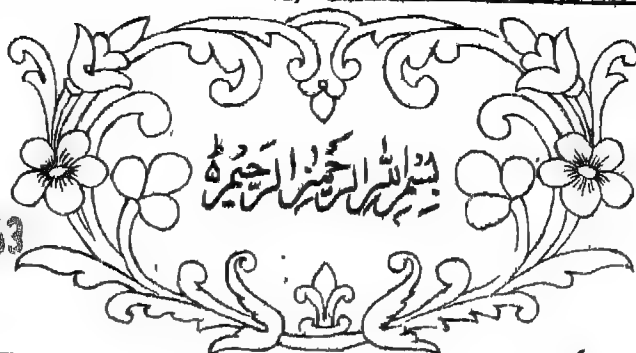 بِسْمِ اللّٰہِ الرَّحْمٰنِ الرَّحِیْمِ ؕ